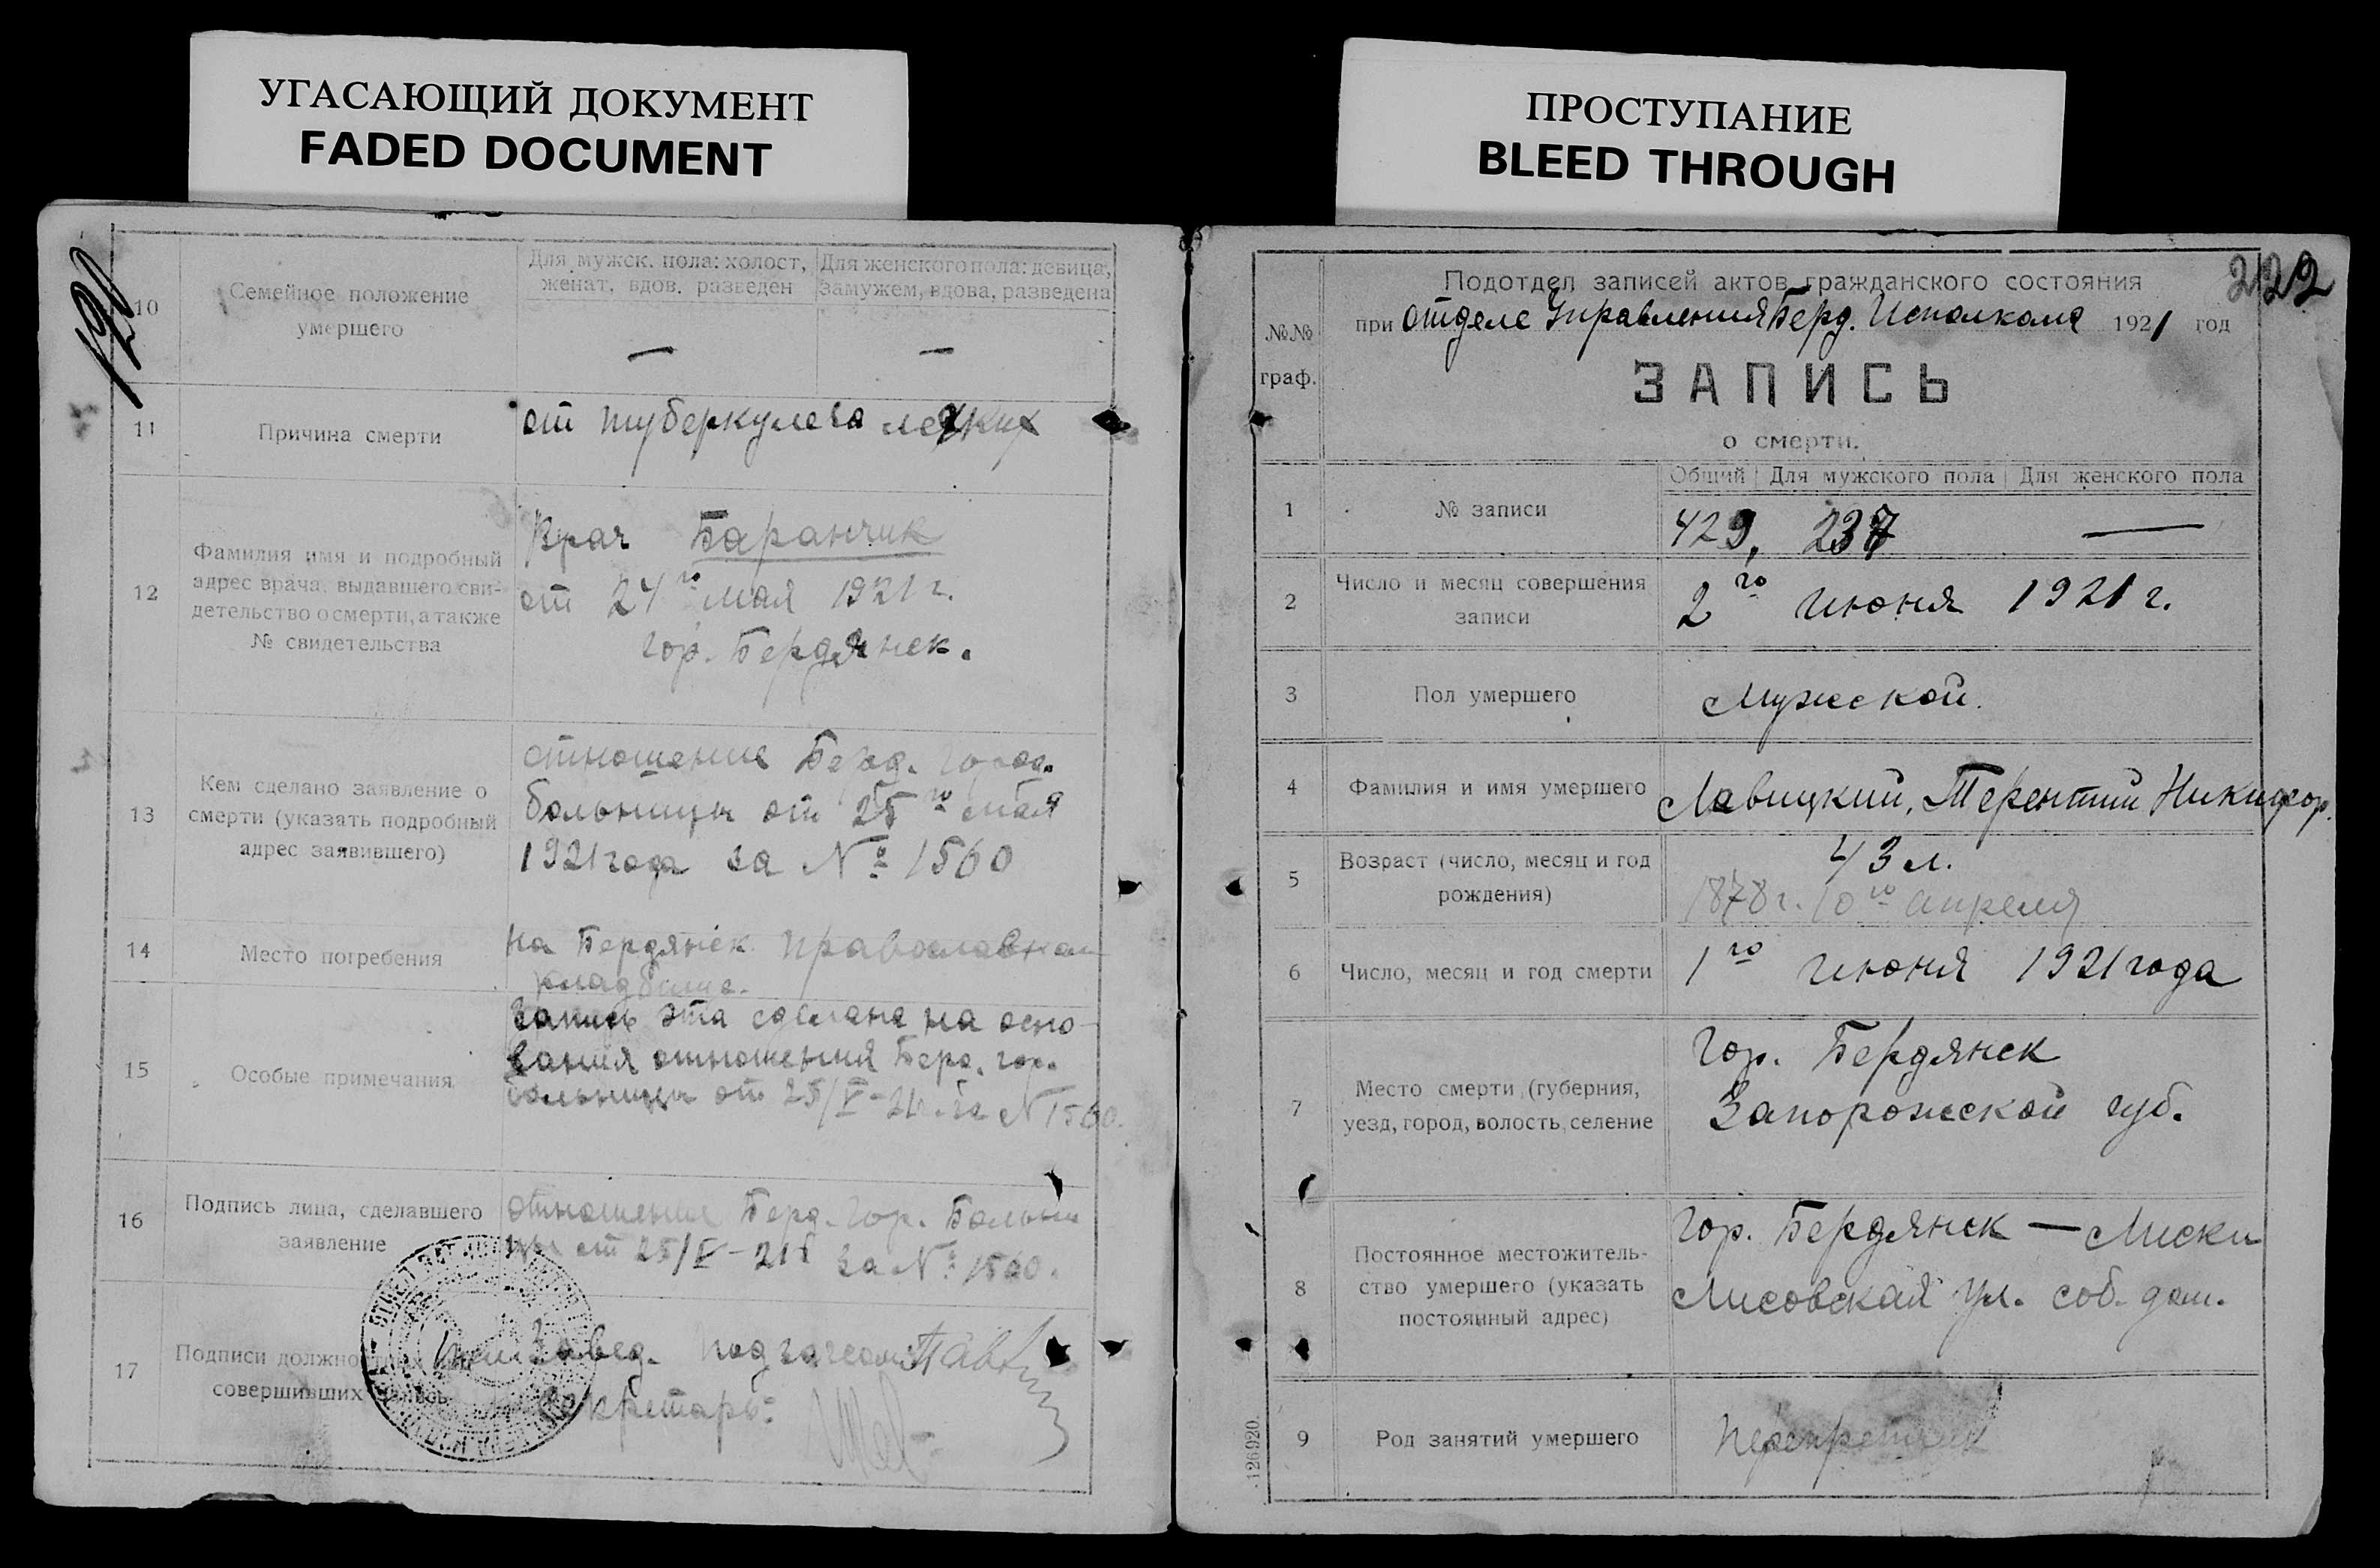 УГАСАЮЩИЙ ДОКУМЕНТ
FADED DOCUMENT
120
10
Семейное положение
умершего
Для мужск. пола: холост,
женат, вдов, разведен
Для женского пола: девица,
замужем, вдова, разведена
—
—
11
Причина смерти
от туберкулеза легких
12
Фамилия имя и подробный
адрес врача, выдавшего сви-
детельство о смерти, а также
№ свидетельства
Врач Баранчик
от 24го мая 1921 г.
гор. Бердянск.
13
Кем сделано заявление о
смерти (указать подробный
адрес заявившего)
отношение Берд. город.
больницы от 25го мая
1921 года за № 1560
14
Место погребения
на Бердянск. православном
кладбище.
15
Особые примечания
Запись эта сделана на осно-
вания отношения Берд. гор.
больницы от 25/V-21 г. за N 1560.
16
Подпись лица, сделавшего
заявление
отношение Берд. Гор. Больни
цы от 25/V-21 г за № 1560.
17
Подписи должностных лиц
совершивших запись
Завед. подзагсом
Секретарь:
ПРОСТУПАНИЕ
BLEED THROUGH
2122
№№
граф.
Подотдел записей актов гражданского состояния
при отделе Управления Берд. Исполкома 1921 год
ЗАПИСЬ
о смерти.
1
№ записи
Общий
Для мужского пола
Для женского пола
429, 237 —
2
Число и месяц совершения
записи
2го июня 1921 г.
3
Пол умершего
Мужской.
4
Фамилия и имя умершего
Лавицкий, Терентий Никифор.
5
Возраст (число, месяц и год
рождения)
43 л.
1878 г. 10го апреля
6
Число, месяц и год смерти
1го июня 1921 года
7
Место смерти (губерния,
уезд, город, волость, селение
Гор. Бердянск
Запорожской губ.
8
Постоянное местожитель-
ство умершего (указать
постоянный адрес)
Гор. Бердянск — Лиски
Лисовская ул. соб. дом.
9
Род занятий умершего
126920.